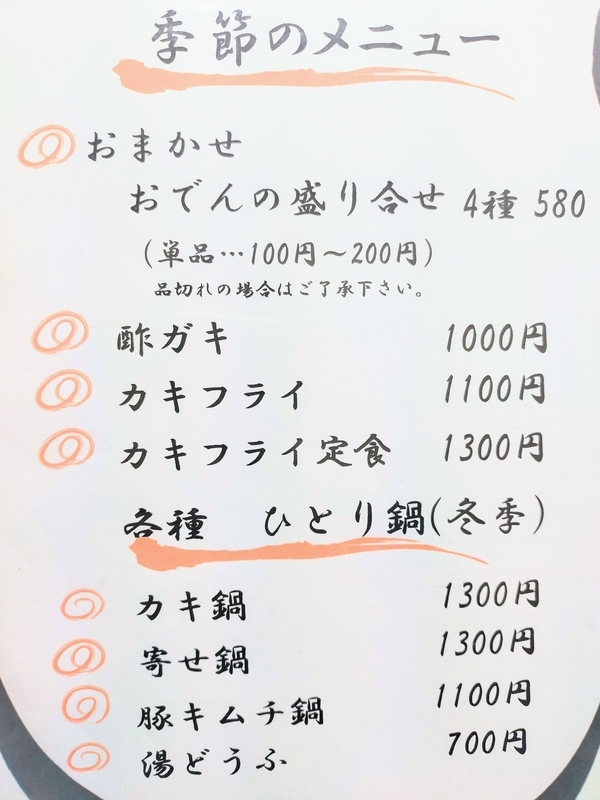 季節のメニュー
おまかせ
おでんの盛り合せ 4種 580
（単品…100円～200円）
品切れの場合はご了承下さい。
酢ガキ 1000円
カキフライ 1100円
カキフライ定食 1300円
各種 ひとり鍋(冬季)
カキ鍋 1300円
寄せ鍋 1300円
豚キムチ鍋 1100円
湯どうふ 700円